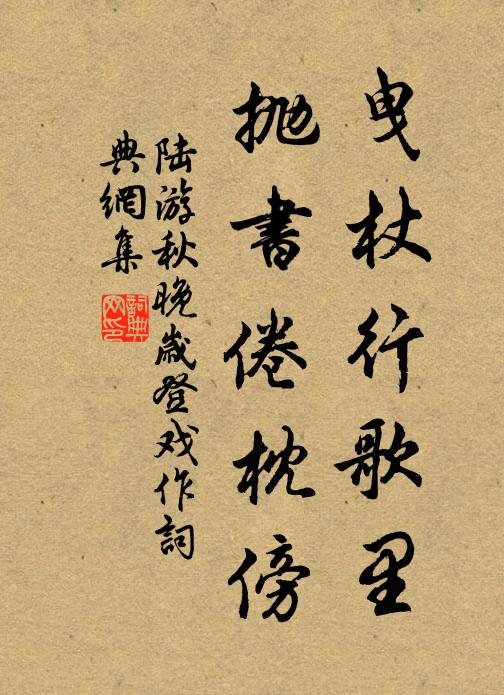 曳杖行歌里
抛書倦枕傍
陆游秋晚歲登戏作詞
典網集
詞典
网印